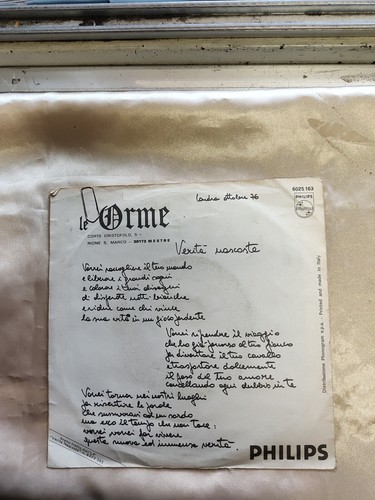 Londra ottobre 76
6025 163
PHILIPS
le Orme
CORTE CRISTOFOLO, 5
RIONE S. MARCO - 30173 MESTRE
Verità nascosta
Vorrei raccogliere il tuo mondo
e liberare i grandi sogni
e colorare i tuoi disegni
di distese notti bianche
e ridere come chi vince
la sua età in un gioco perdente
Vorrei riprendere il viaggio
che ho già perso al tuo fianco
fa diventare il tuo cavallo
e trasportare dolcemente
il peso del tuo amore
cancellando ogni dubbio in te
Vorrei tornare nei nostri luoghi
far risentire le parole
che sussurravi ad un sordo
ma ero il tempo che non tace:
vorrei vorrei far vivere
questa nuova ed immensa verità.
Distribuzione Phonogram s.p.a. - Printed and made in Italy
PHILIPS